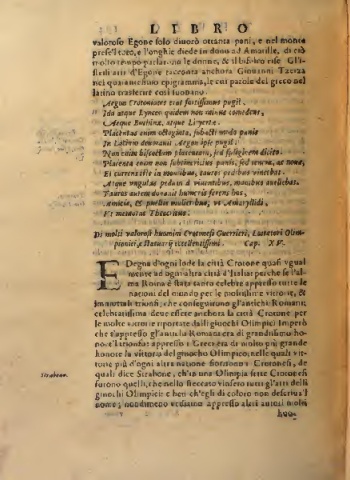 LIBRO
valoroso Egone solo divorò ottanta pani, e nel monte
prese'l toro, e l'onghie diede in dono ad Amarille, di ciò
molto tempo parlarono le donne, & il bifolco rise. Gl'i-
stessi atti d'Egone racconta anchora Giovanni Tzetza
nel epigramma, le cui parole del greco nel
latino trasferite così suonano.
Aegon Crotoniates erat fortissimus pugil.
Ida atque Lynceo quidem non omnia comedens,
Atque Buthina, atque Lityersa.
Placentas enim octoginta, subacti modo panis
In Latinio devoravit Aegon ipse pugil.
Non enim biscoctum placentam, sed siligineam dicito.
Placenta enim non subcinericius panis, sed tenera, ac nova,
Et currens ille in montibus, tauros pedibus vincebat.
Atque ungulas pedum à viventibus, manibus avellebat.
Taurus autem donavit humeris ferens hos,
Amicis, & puellis mulieribus, ut Amaryllidi,
Et meminit Theocritus.
Di molti valorosi huomini Crotonesi Guerrieri, Luttatori Olim-
pionici, e Statuarij eccellentissimi. Cap. XV.
E Degna d'ogni lode la città Crotone quasi ugual
mente ad ogni altra città d'Italia: perche se l'al-
ma Roma è stata tanto celebre appresso tutte le
nationi del mondo per le moltissime vittorie, &
immortali trionfi, che conseguirono gl'antichi Romani;
celebratissima deve essere anchora la città Crotone per
le molte vittorie riportate dalli giuochi Olimpici. Imperò
che s'appresso gl'antichi Romani era di grandissimo ho-
nore il trionfar: appresso i Greci era di molto più grande
honore la vittoria del giuocho Olimpico, nelle quali vit-
torie più d'ogni altra natione fiorirono i Crotonesi, de
quali dice Strabone, ch'in una Olimpia sette Crotonesi
furono quelli, che nello steccato vinsero tutti gl'altri delli
giuochi Olimpici: e beh ch'egli di coloro non descriva'l
nome; nondimeno vedremo appresso altri autori molti
huo-
Strabone.